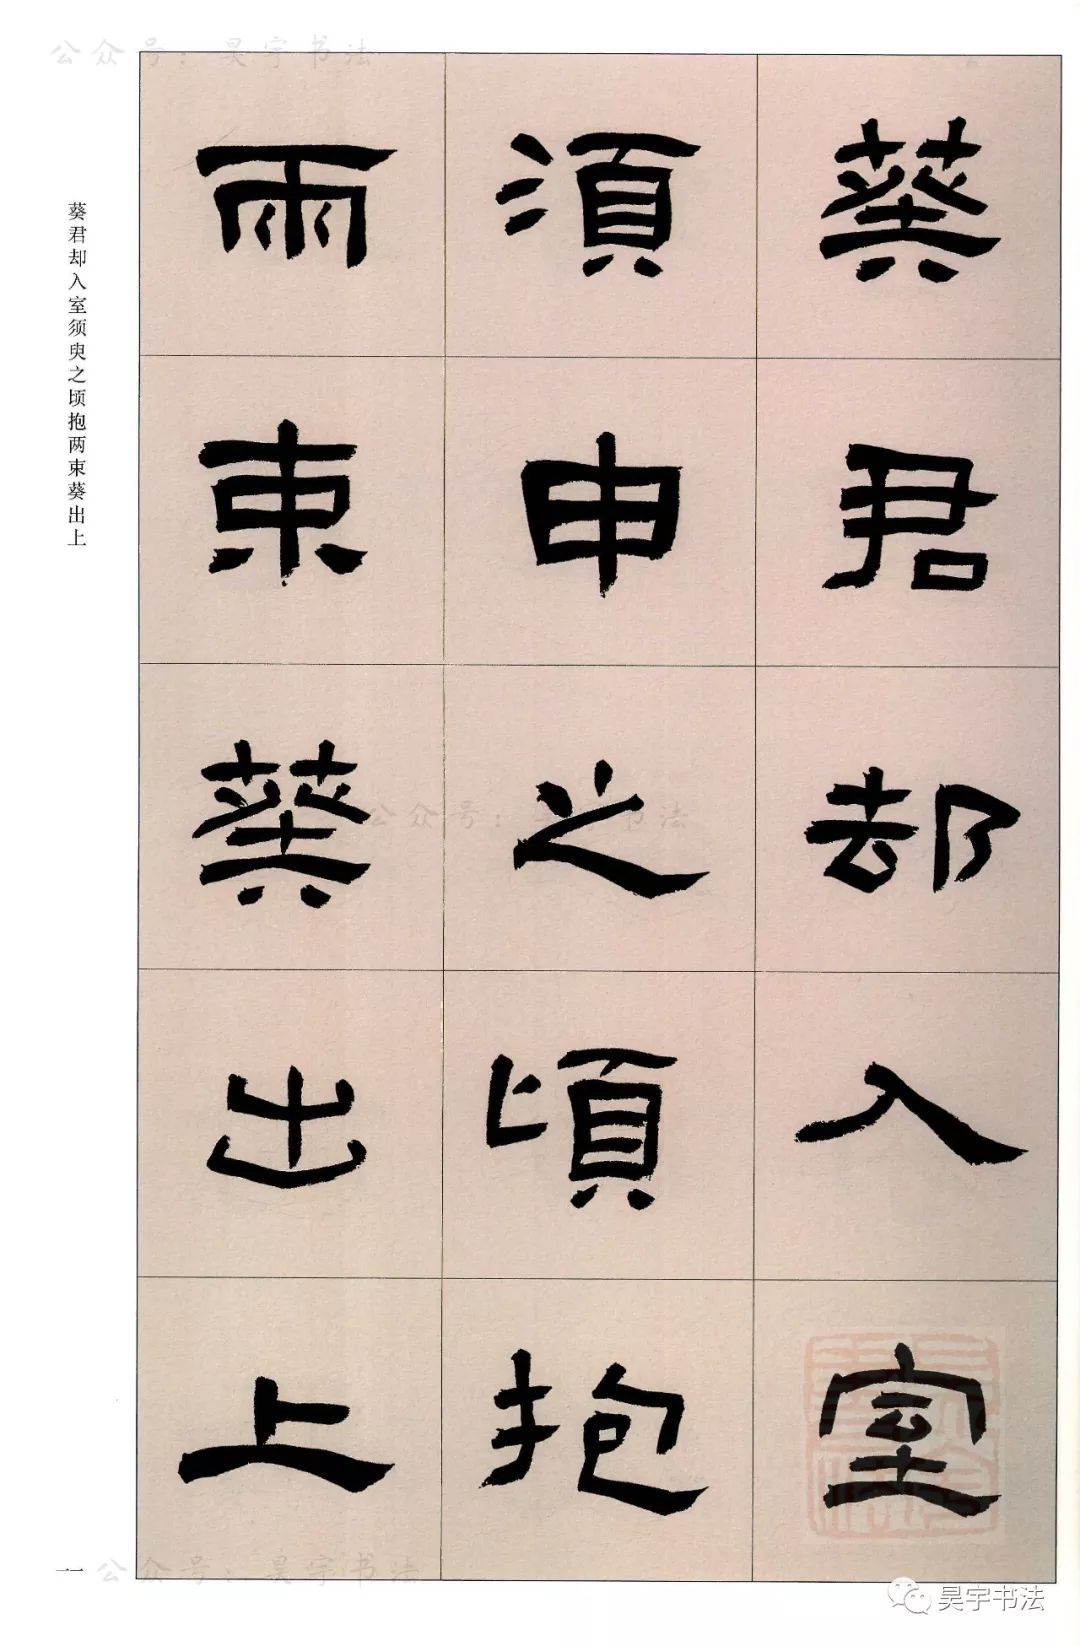 公众号：昊宇书法
葵君却入室
須申之頃抱
兩束葵出上
葵君却入室须臾之顷抱两束葵出上
公众号：昊宇书法
一一
公众号：昊宇书法
昊宇书法